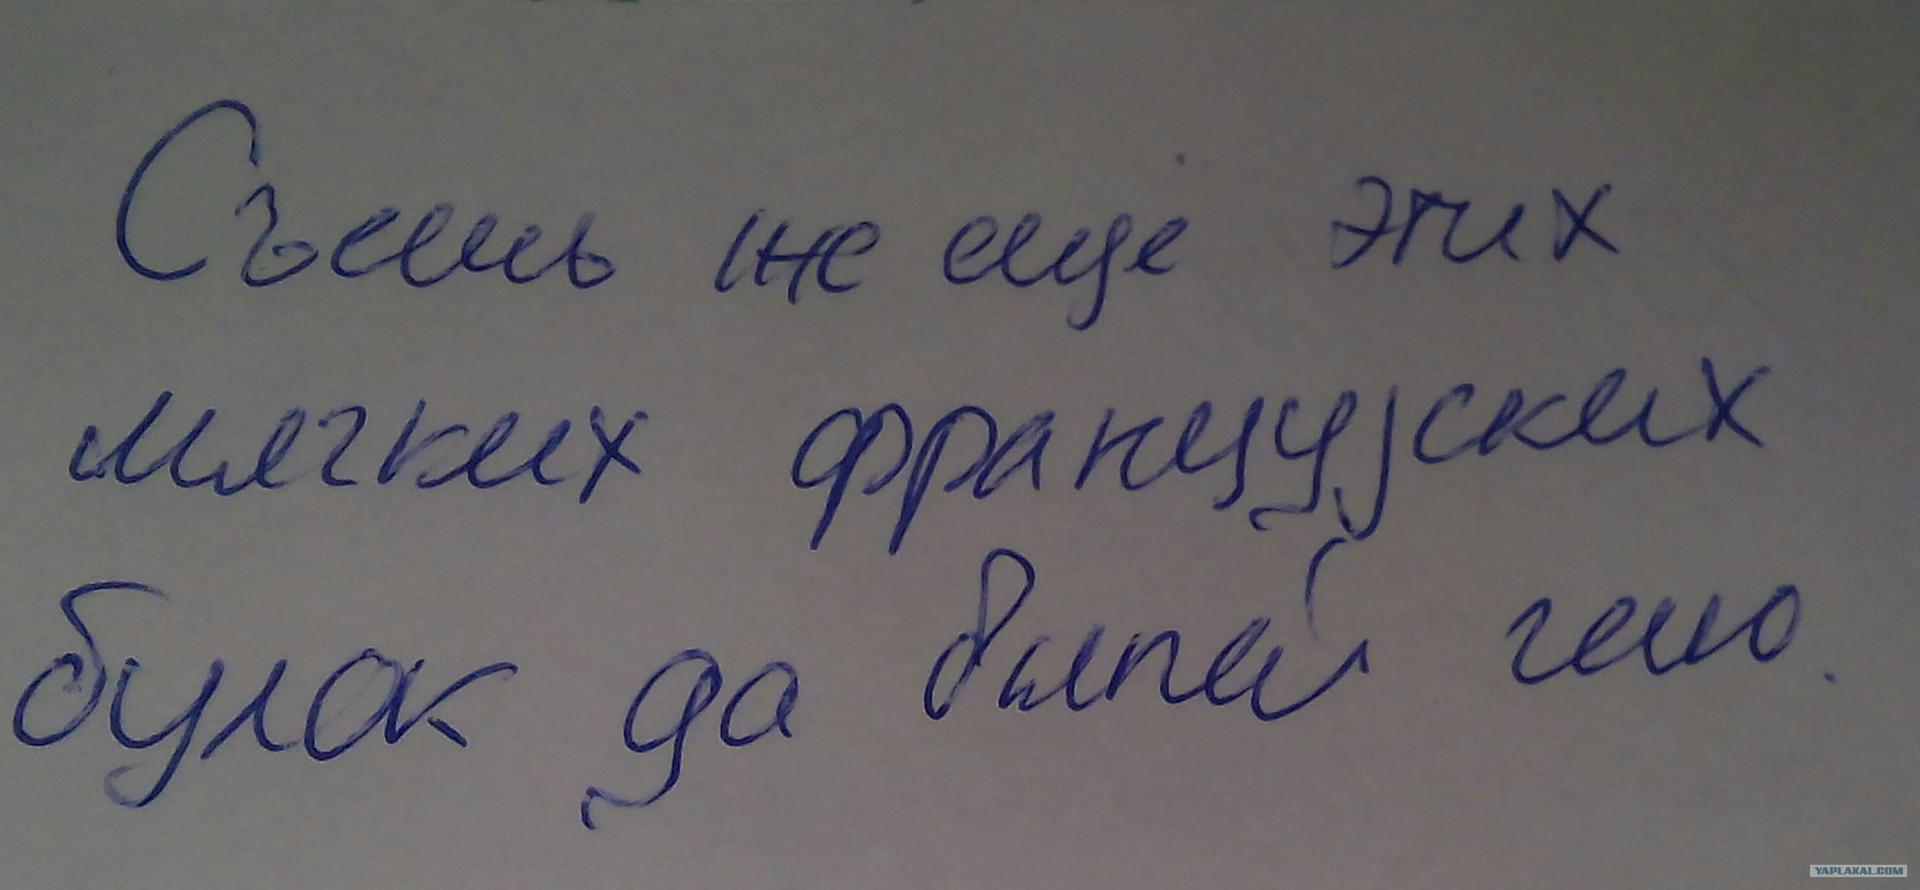 Съешь же еще этих
мягких французских
булок да выпей чаю.
YAPLAKAL.COM